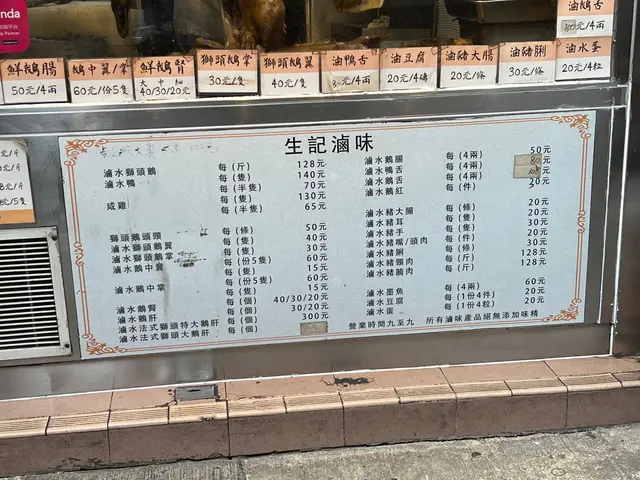 nda
鮮鵝腸
50元/4兩
鵝中翼掌
60元/份5隻
鮮鵝腎
大 中 細
40/30/20元
獅頭鵝掌
30元/隻
獅頭鵝翼
40元/隻
油鴨舌
元/4兩
油豆腐
20元/4磚
油豬大腸
20元/條
油豬脷
30元/條
油鵝舌
80元/4兩
油水蛋
20元/4粒
生記滷味
滷水獅頭鵝 每(斤) 128元
滷水鴨 每(隻) 140元
每(半隻) 70元
咸雞 每(隻) 130元
每(半隻) 65元
獅頭鵝頭頸 每(條) 50元
滷水獅頭鵝翼 每(隻) 40元
滷水獅頭鵝掌 每(隻) 30元
滷水鵝中翼 每(份5隻) 60元
每(隻) 15元
滷水鵝中掌 每(份5隻) 60元
每(隻) 15元
滷水鵝腎 每(個) 40/30/20元
滷水鵝肝 每(個) 30/20元
滷水法式獅頭特大鵝肝 每(個) 300元
滷水法式獅頭大鵝肝 每(個)
滷水鵝腸 每(4兩) 50元
滷水鴨舌 每(4兩) 80元
滷水鵝舌 每(4兩)
滷水鵝紅 每(件) 20元
滷水豬大腸 每(條) 20元
滷水豬耳 每(隻) 30元
滷水豬手 每(隻) 20元
滷水豬嘴/頭肉 每(件) 20元
滷水豬脷 每(條) 30元
滷水豬頸肉 每(斤) 128元
滷水豬腩肉 每(斤) 128元
滷水墨魚 每(4兩) 60元
滷水豆腐 每(1份4件) 20元
滷水蛋 每(1份4粒) 20元
營業時間九至九 所有滷味產品絕無添加味精